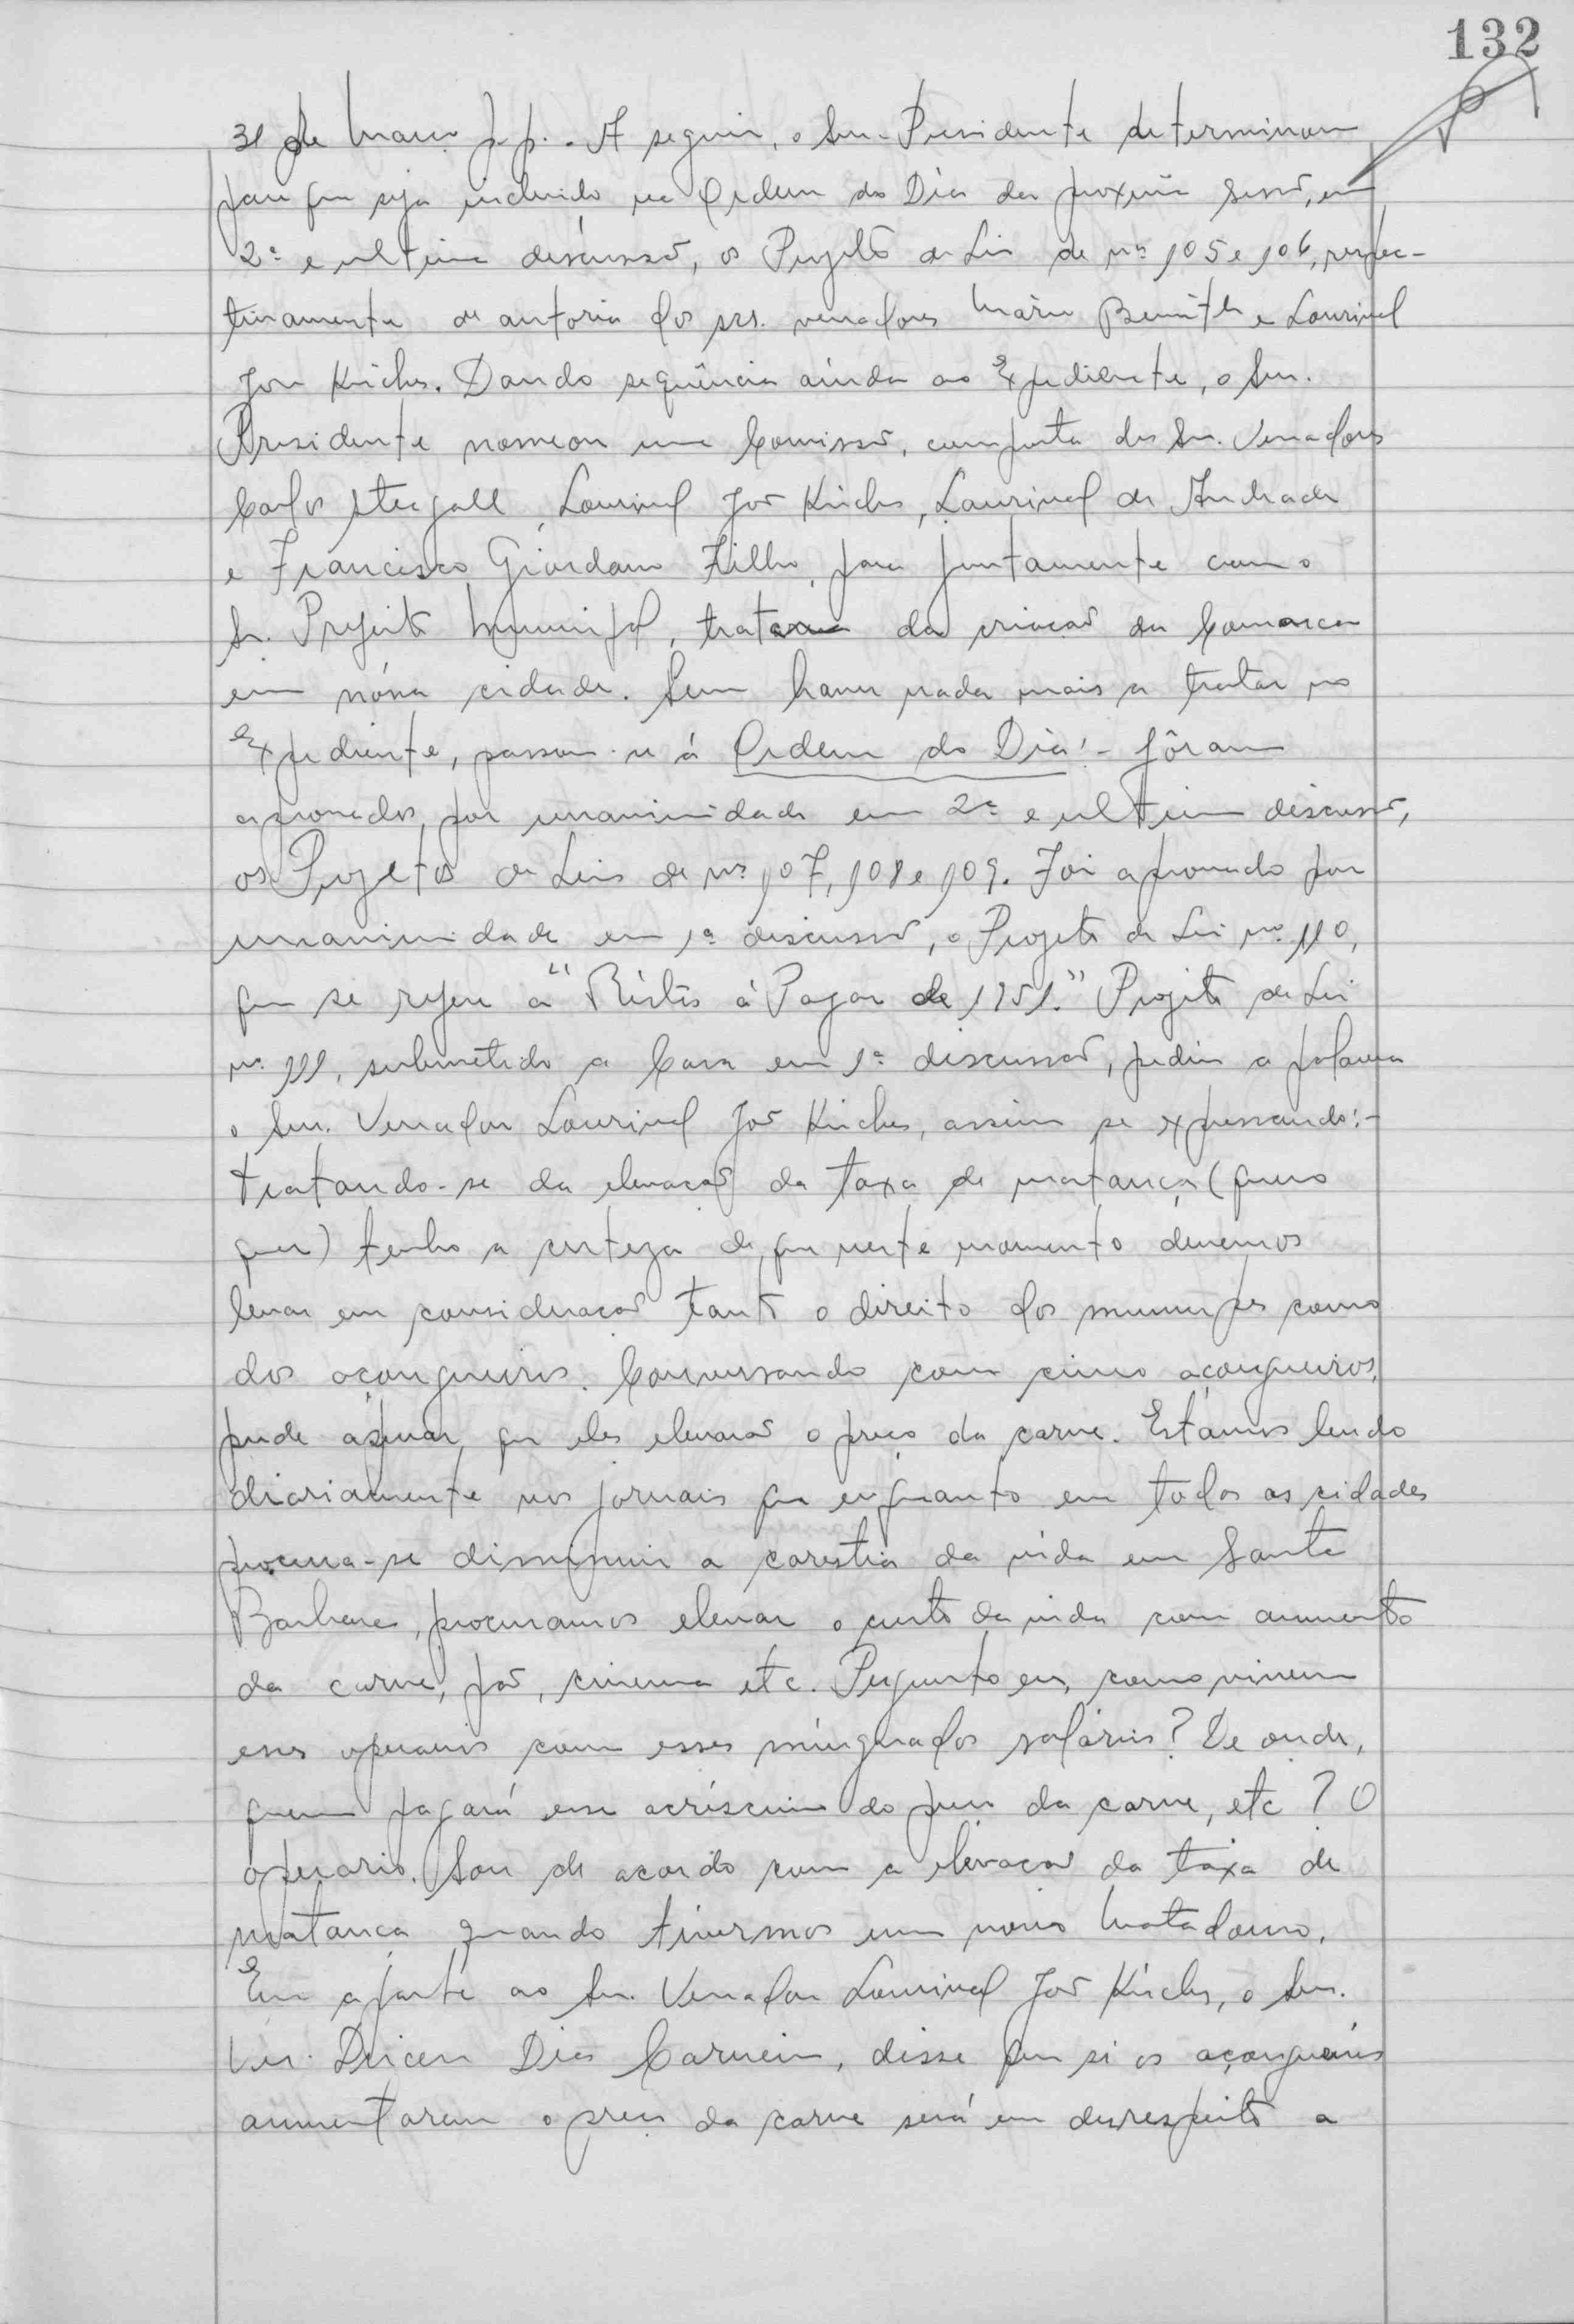 132
31 de Março p.p. A seguir, o Snr. Presidente determinou
para que seja incluido na Ordem do Dia da proxima sessão, em
2ª e ultima discussão, os Projetos de Lei de nºs 105 e 106, respec-
tivamente de autoria dos srs. vereadores Mário e Lourival
José Kirche. Dando sequência ainda ao Expediente, o Snr.
Presidente nomeou uma Comissão, composta dos Snr. Vereadores
Carlos Steagall, Lourival José Kirche, Laurival de Andrade
e Francisco Giordano Filho, para juntamente com o
Sr. Prefeito Municipal, tratarem da criação da Comarca
em nóssa cidade. Sem haver nada mais a tratar no
Expediente, passou-se á Ordem do Dia:- fôram
aprovados, por unanimidade em 2ª e ultima discussão,
os Projetos de Leis de nºs 107, 108 e 109. Foi aprovado por
unanimidade em 1ª discussão, o Projeto de Lei nº 110,
que se refere a "Réstos á Pagar de 1951." Projeto de Lei
nº 111, submetido a Casa em 1ª discussão, pediu a palavra
o Snr. Vereador Lourival José Kirche, assim se expressando:-
tratando-se da elevação da taxa de matança (
) tenho a certeza de que neste momento devemos
levar em consideração tanto o direito dos munícipes como
dos açougueiros. Conversando com cinco açougueiros,
pude apurar, que eles elevarão o preço da carne. Estámos lendo
diariamente nos jornais que enquanto em todas as cidades
procura-se diminuir a carestia da vida em Santa
Barbara, procuramos elevar o custo da vida com aumento
da carne, pão, cinema etc. Pergunto eu, como vivem
esses operarios com esses minguados salários? De onde,
quem pagará esse acréscimo do preço da carne, etc? O
operario. Sou de acordo com a elevação da taxa de
matança quando tivermos um novo Matadouro.
Em aparte ao Snr. Vereador Lourival José Kirche, o Snr.
Ver. Dirceu Dias Carneiro, disse que si os açougueiros
aumentarem o preço da carne será em desrespeito a